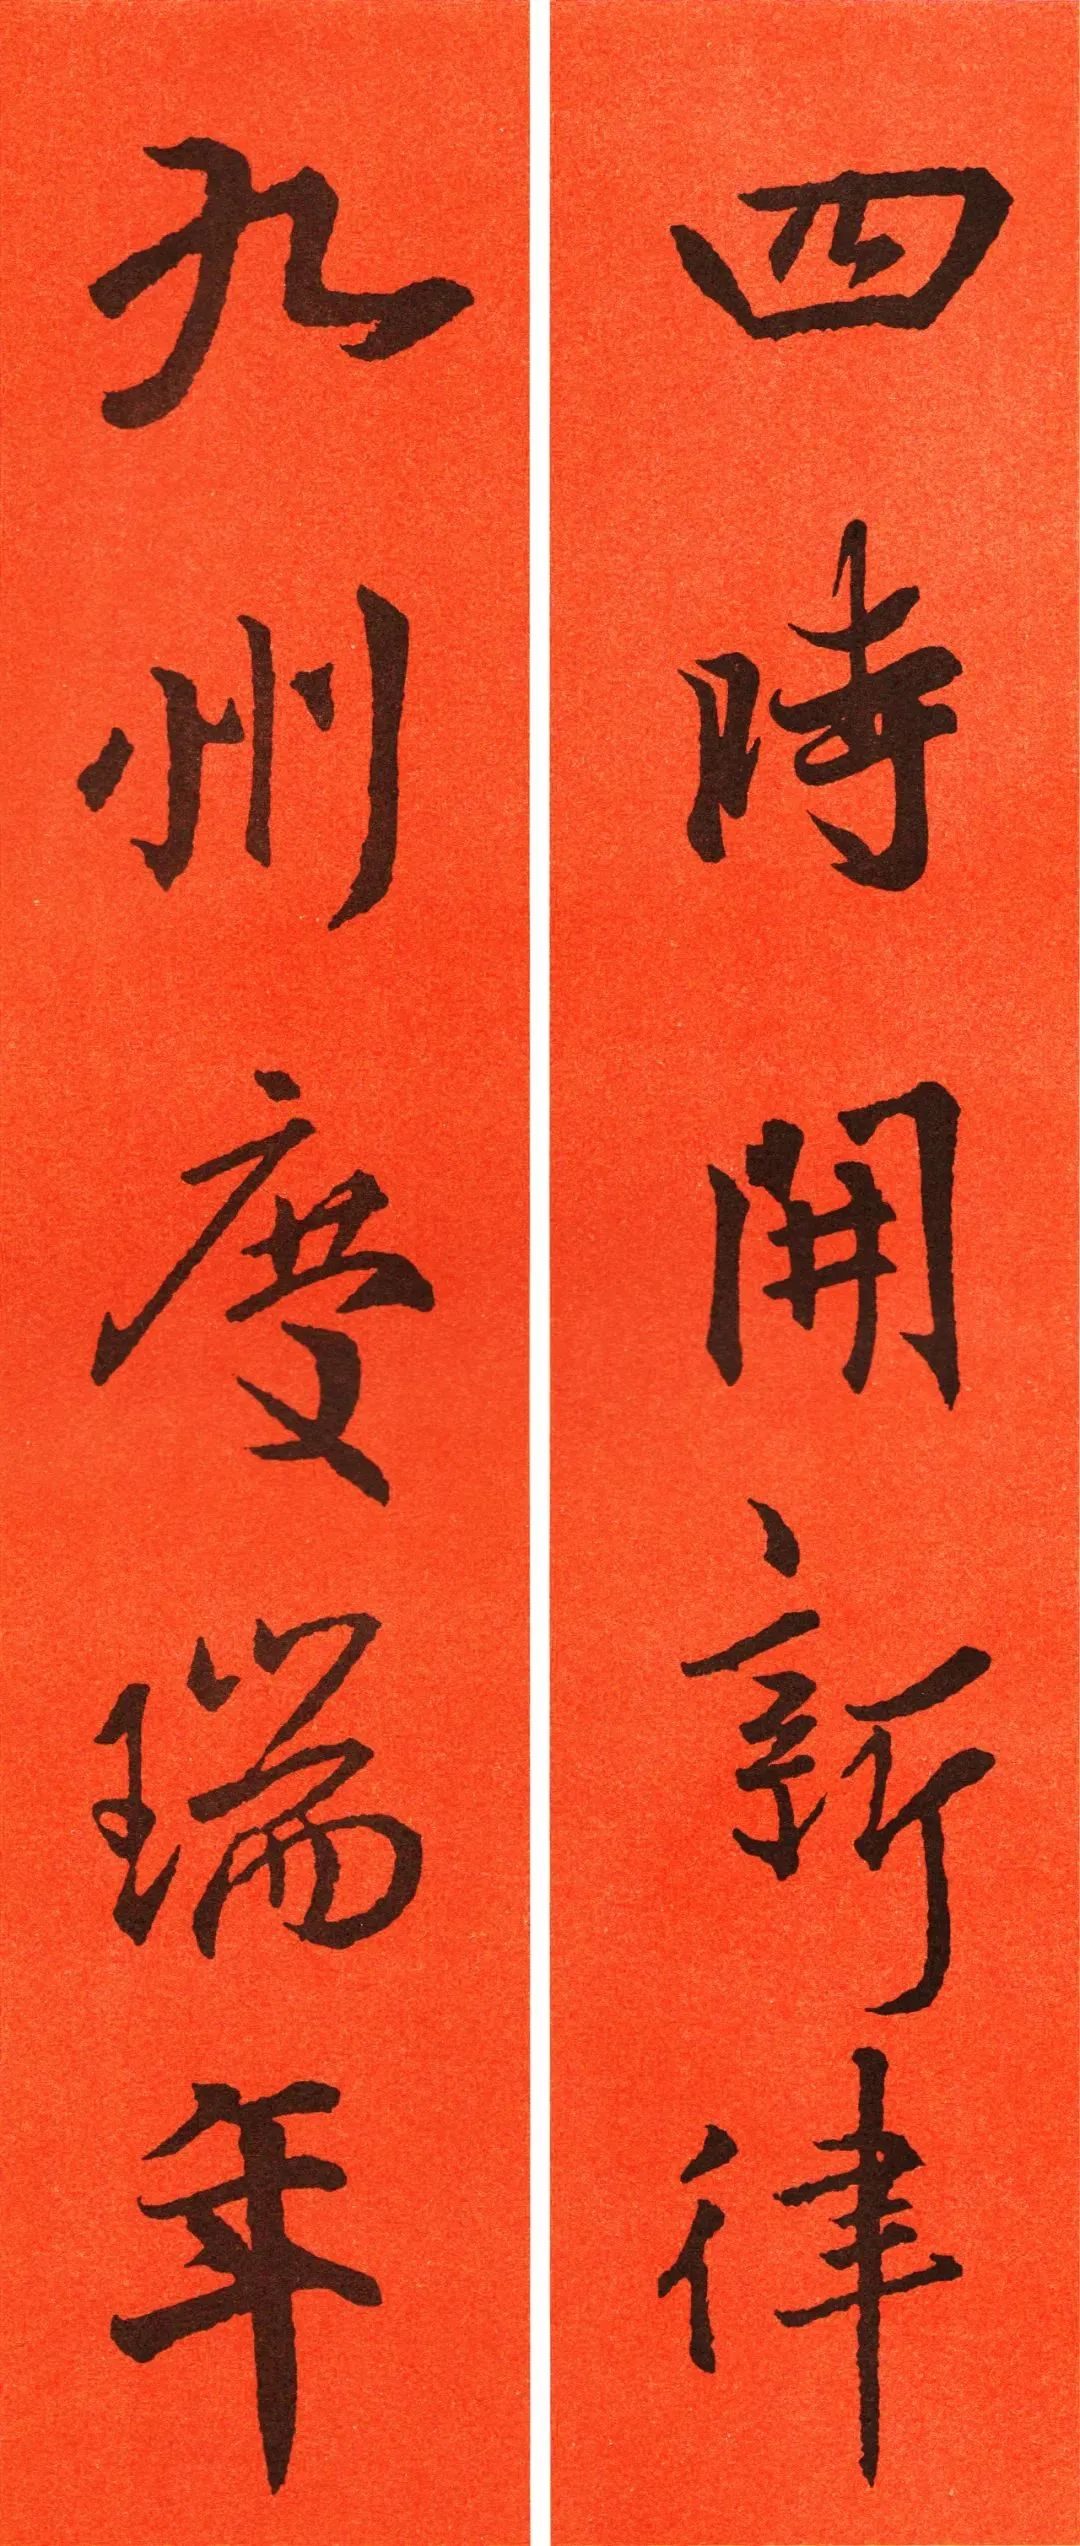 四時開新律
九州慶瑞年